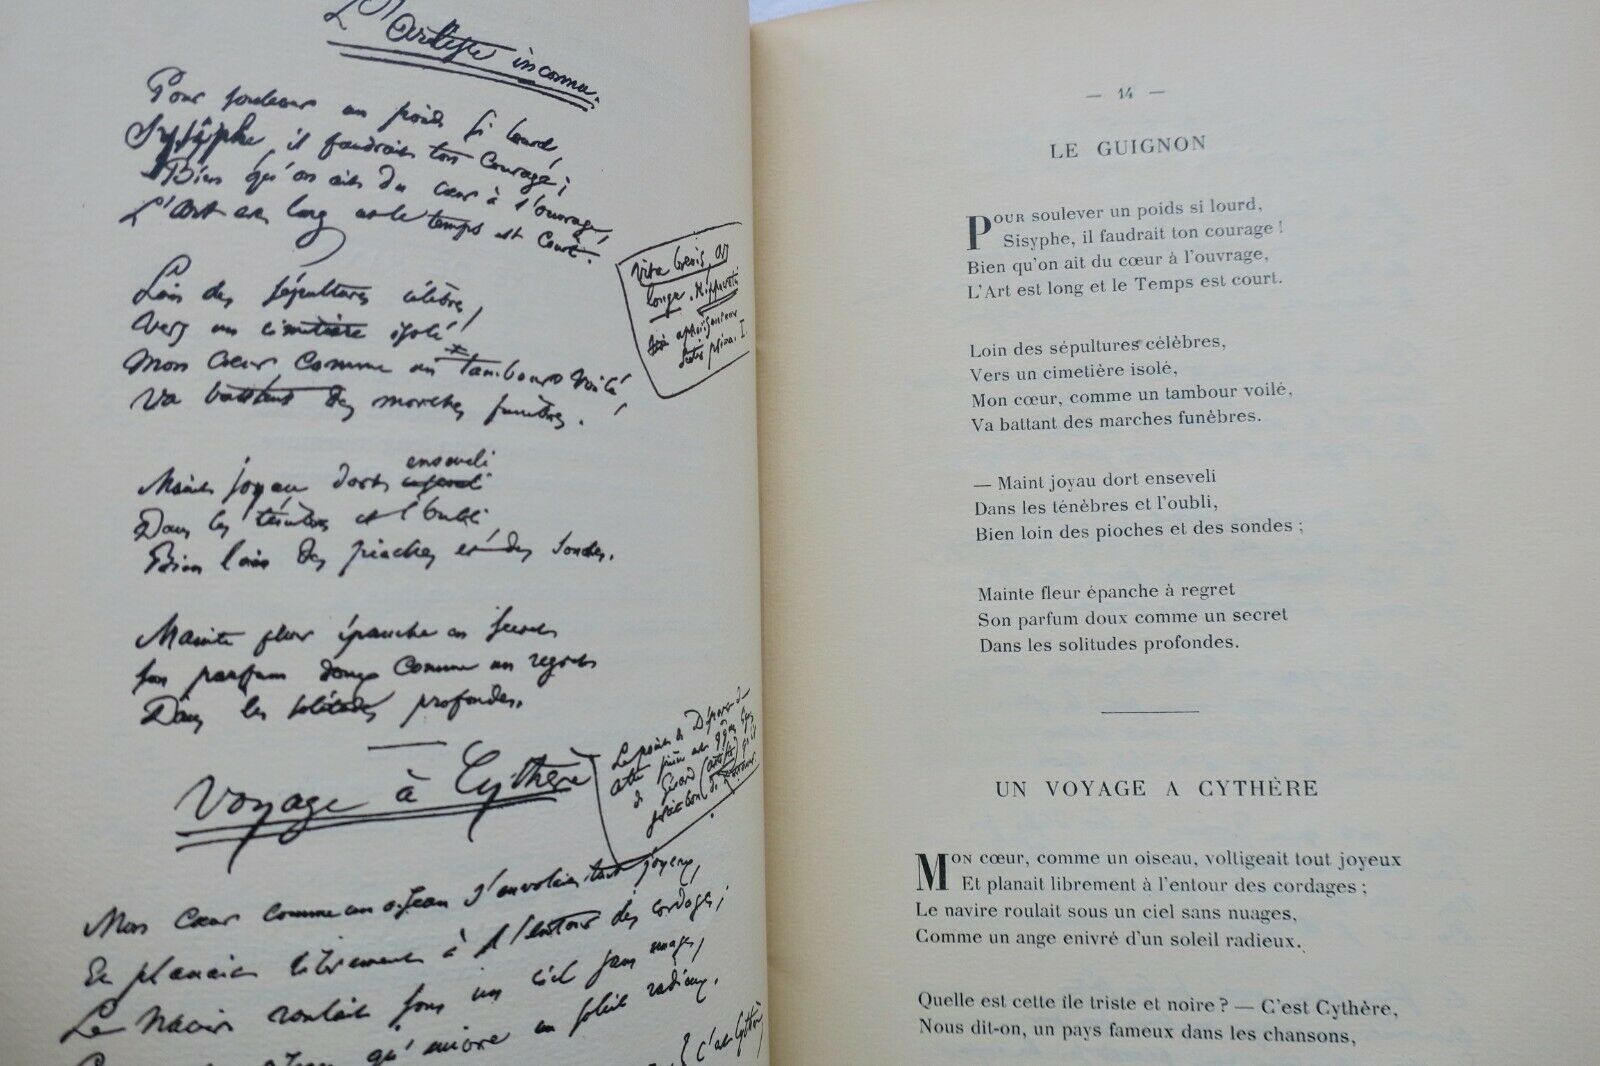 L'Artiste inconnu.
Pour soulever un poids si lourd,
Sysyphe, il faudrait ton courage;
Bien qu'on ait du cœur à l'ouvrage,
L'Art est long et le temps est court.
Vita brevis, ars
longa. Hippocrate
aphorismes
Loin des sépultures célèbres,
Vers un cimetière isolé,
Mon cœur comme un * tambour voilé,
Va battant des marches funèbres.
enseveli
Maint joyau dort
Dans les ténèbres et l'oubli,
Bien loin des pioches et des sondes.
Mainte fleur épanche en secret
Son parfum doux comme un regret
Dans les solitudes profondes.
Voyage à Cythère
Le point de départ de
cette pièce est
de Gérard (artiste) qu'il
Mon cœur comme un oiseau s'envolait tout joyeux,
Et planait librement à l'entour des cordages;
Le navire roulait sous un ciel sans nuages,
qu'enivre un soleil radieux.
C'est Cythère
— 14 —
LE GUIGNON
POUR soulever un poids si lourd,
Sisyphe, il faudrait ton courage !
Bien qu'on ait du cœur à l'ouvrage,
L'Art est long et le Temps est court.
Loin des sépultures célèbres,
Vers un cimetière isolé,
Mon cœur, comme un tambour voilé,
Va battant des marches funèbres.
— Maint joyau dort enseveli
Dans les ténèbres et l'oubli,
Bien loin des pioches et des sondes ;
Mainte fleur épanche à regret
Son parfum doux comme un secret
Dans les solitudes profondes.
UN VOYAGE A CYTHÈRE
MON cœur, comme un oiseau, voltigeait tout joyeux
Et planait librement à l'entour des cordages ;
Le navire roulait sous un ciel sans nuages,
Comme un ange enivré d'un soleil radieux.
Quelle est cette île triste et noire ? — C'est Cythère,
Nous dit-on, un pays fameux dans les chansons,